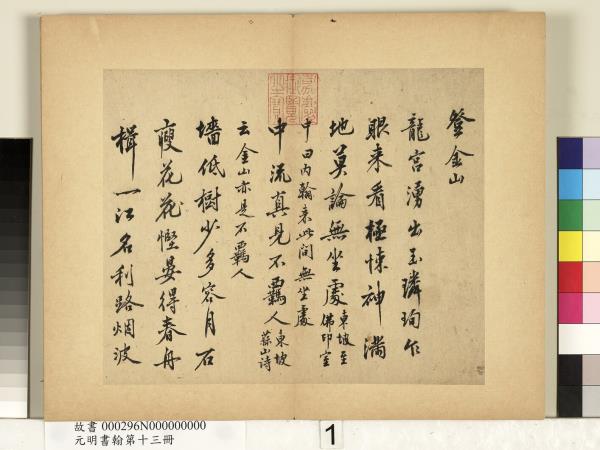 登金山
龍宮湧出玉璘珣乍
眼来看極悚神滿
地莫論無坐處東坡至
佛印室
中曰内翰来此間無坐處
中流真見不羈人東坡
蒜山诗
云金山亦是不羈人
墻低樹少多容月石
瘦花花慳晏得春舟
楫一江名利路烟波
故書 000296N000000000
元明書翰第十三冊
1